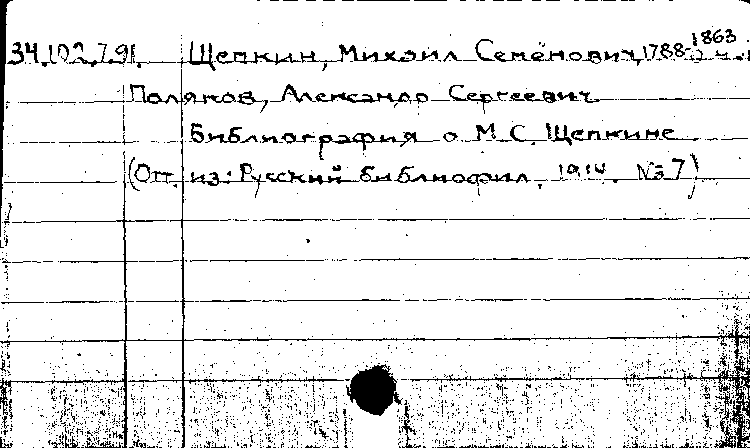 34.102.7.91. Щепкин, Михаил Семёнович, 1788-1863
Поляков, Александр Сергеевич.
Библиография о М.С. Щепкине.
(Отт. из: Русский библиофил. 1914. №7)